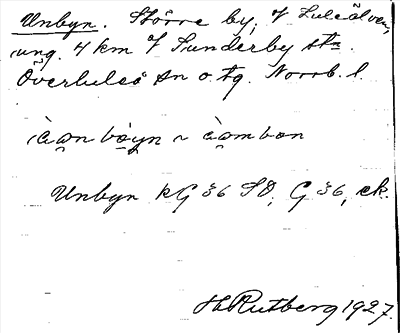 Unbyn. Större by, V Luleälven,
ung. 4 km V Sunderby stn.
Överluleå sn o. tg. Norrb. l.
Unbyn kG 36 SD, G 36, ek.
H Rutberg 1927.